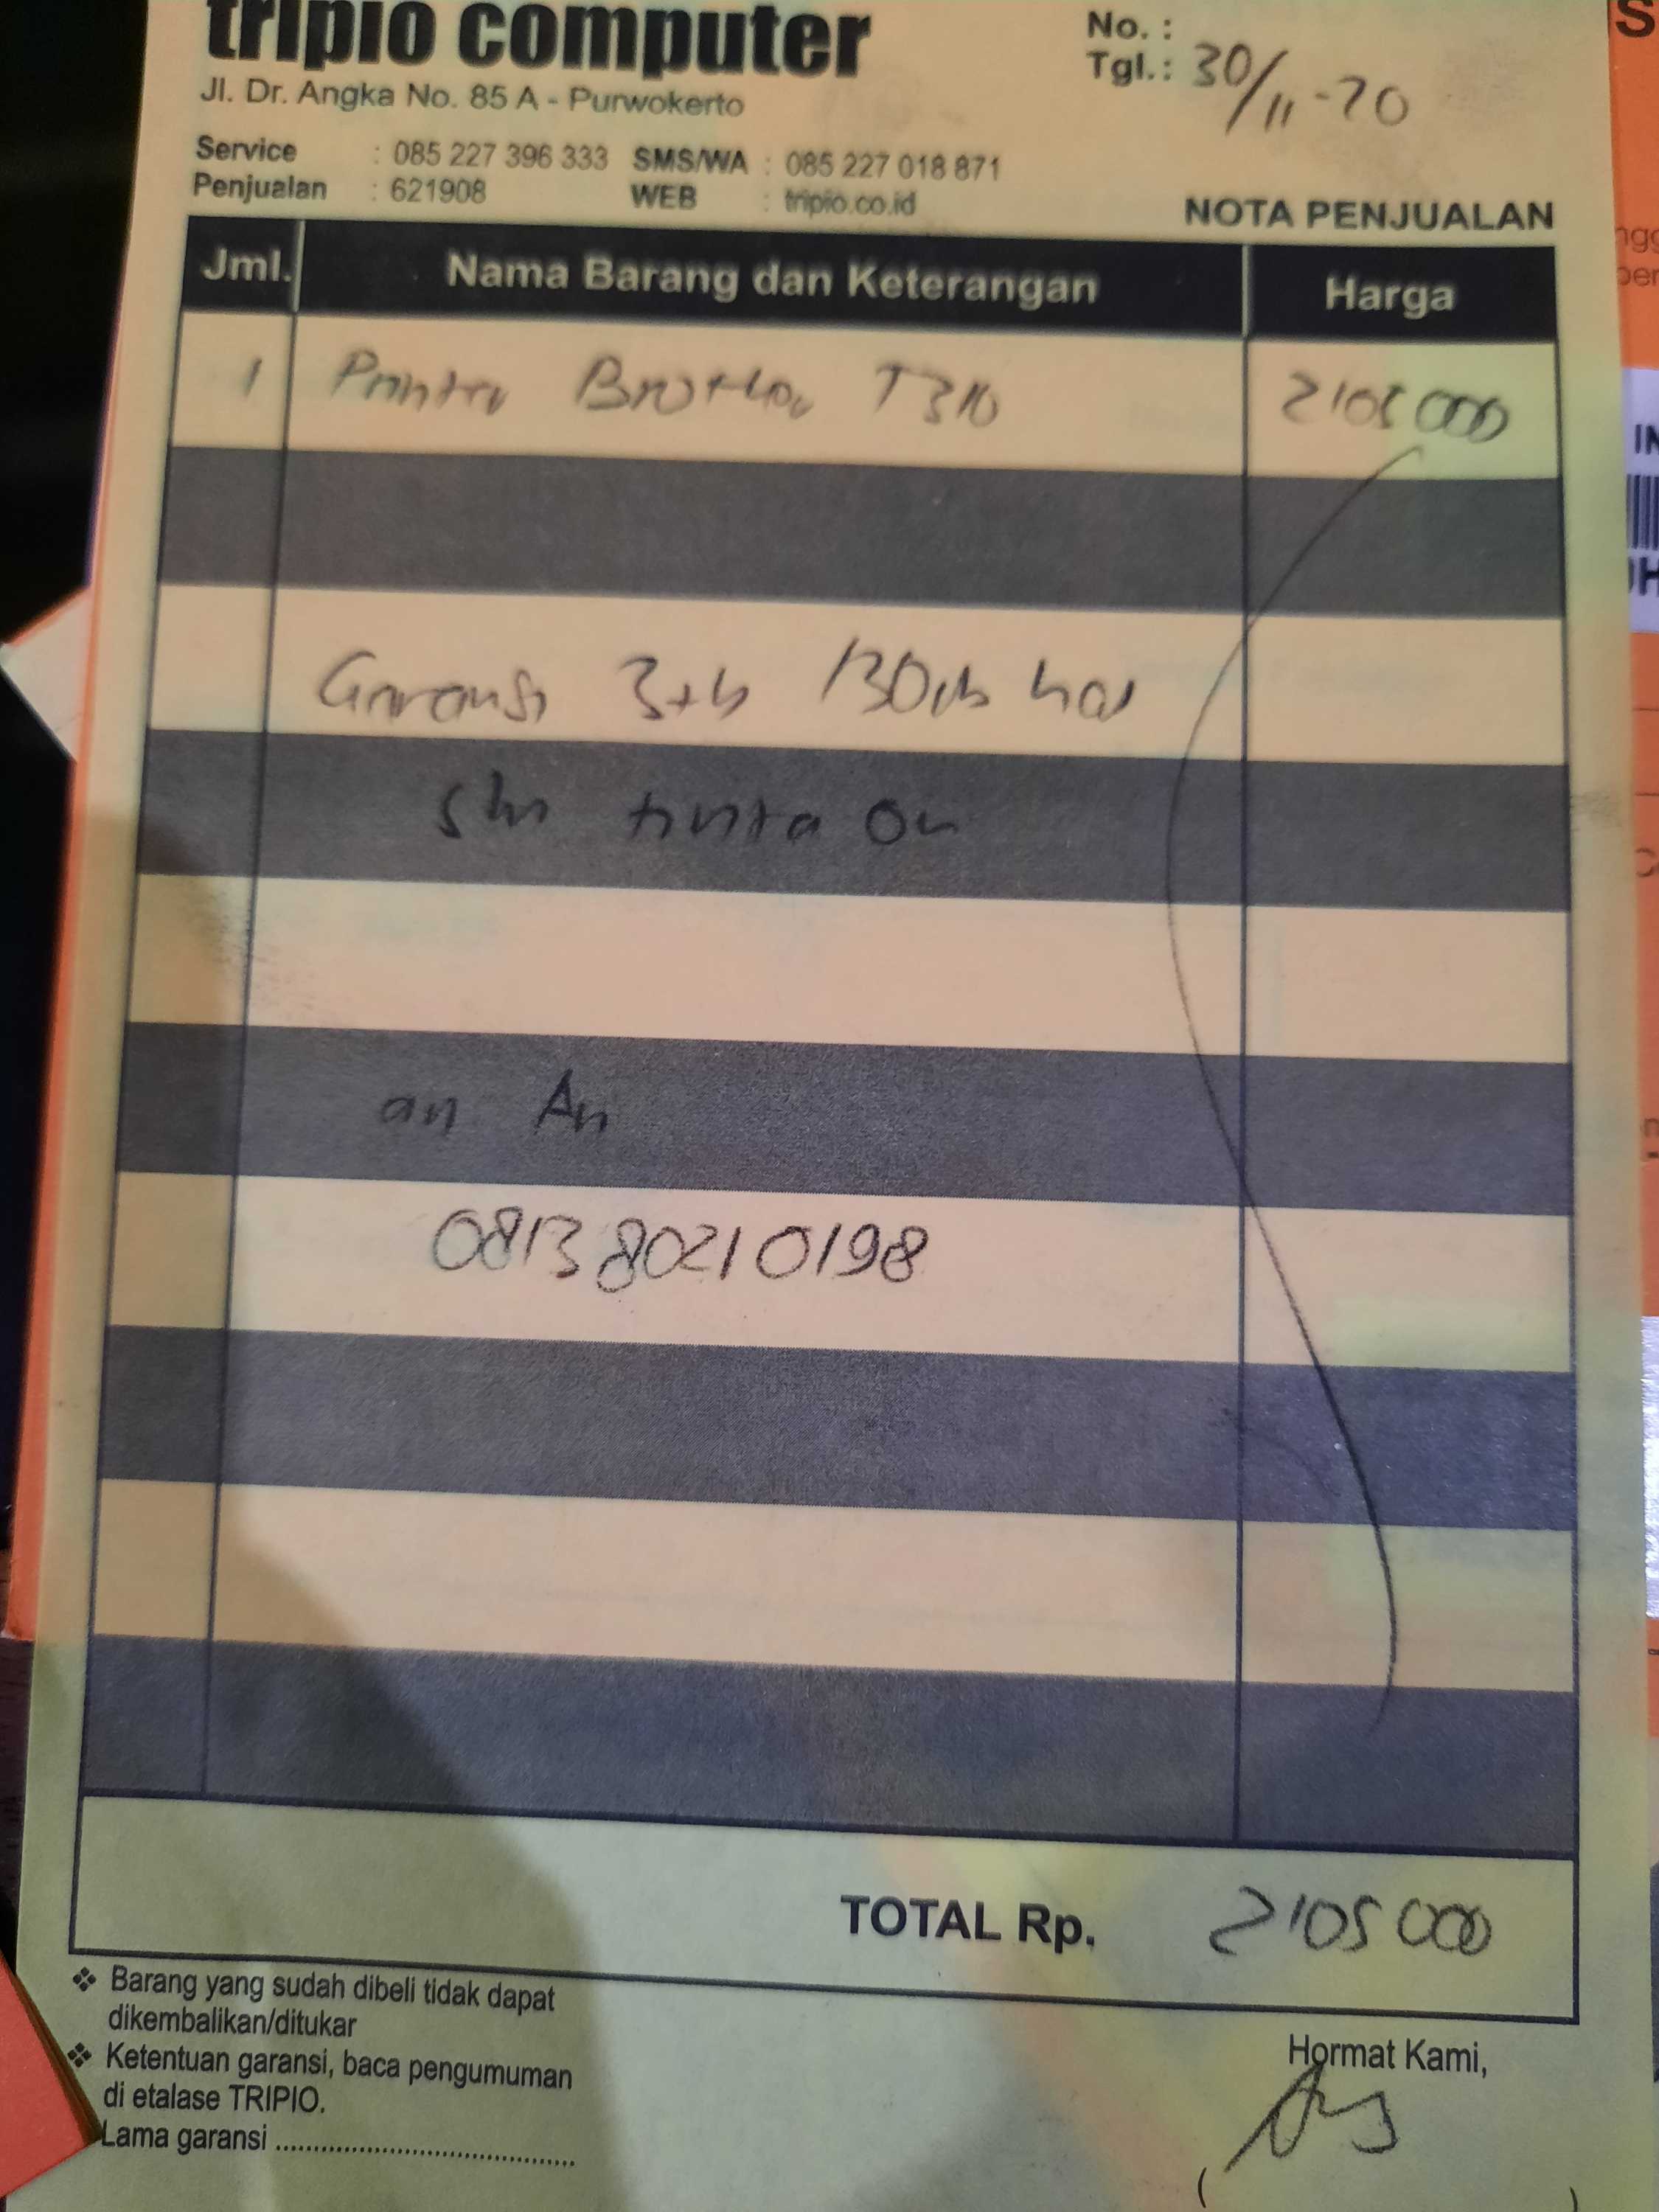 tripio computer
Jl. Dr. Angka No. 85 A - Purwokerto
No. :
Tgl. : 30/11-20
Service : 085 227 396 333 SMS/WA : 085 227 018 871
Penjualan : 621908 WEB : tripio.co.id
NOTA PENJUALAN
Jml. Nama Barang dan Keterangan Harga
1 Printer Brother T310 2105000
Garansi 3th
tinta
an An
081380210198
TOTAL Rp. 2105000
❖ Barang yang sudah dibeli tidak dapat
dikembalikan/ditukar
❖ Ketentuan garansi, baca pengumuman
di etalase TRIPIO.
Lama garansi ........................................
Hormat Kami,
( )